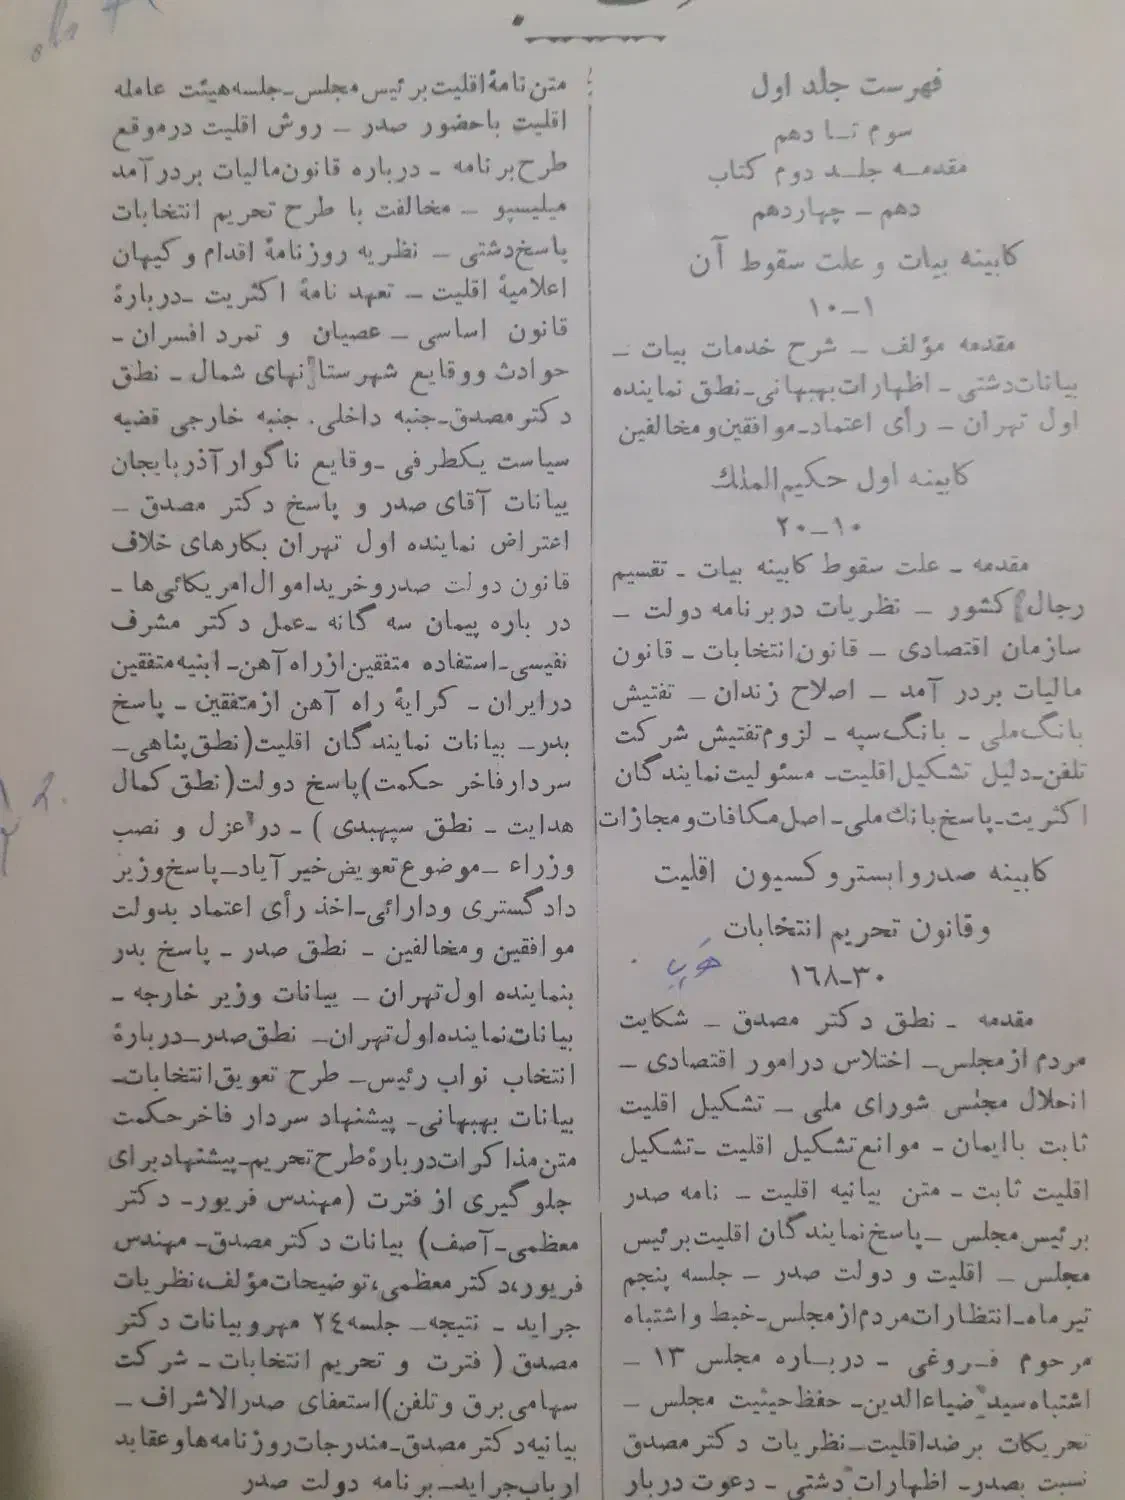 فهرست جلد اول
سوم تا دهم
مقدمه جلد دوم کتاب
دهم ـ چهاردهم
کابینه بیات و علت سقوط آن
۱ـ۱۰
مقدمه مؤلف ـ شرح خدمات بیات ـ
بیانات دشتی ـ اظهارات بهبهانی ـ نطق نماینده
اول تهران ـ رأی اعتماد ـ موافقین و مخالفین
کابینه اول حکیم‌الملك
۱۰ـ۲۰
مقدمه ـ علت سقوط کابینه بیات ـ تقسیم
رجال کشور ـ نظریات در برنامه دولت ـ
سازمان اقتصادی ـ قانون انتخابات ـ قانون
مالیات بردرآمد ـ اصلاح زندان ـ تفتیش
بانگ ملی ـ بانگ سپه ـ لزوم تفتیش شرکت
تلفن ـ دلیل تشکیل اقلیت ـ مسئولیت نمایندگان
اکثریت ـ پاسخ بانك ملی ـ اصل مکافات و مجازات
کابینه صدر و ابستروکسیون اقلیت
و قانون تحریم انتخابات
۳۰ـ۱۶۸
مقدمه ـ نطق دکتر مصدق ـ شکایت
مردم از مجلس ـ اختلاس در امور اقتصادی ـ
انحلال مجلس شورای ملی ـ تشکیل اقلیت
ثابت باایمان ـ موانع تشکیل اقلیت ـ تشکیل
اقلیت ثابت ـ متن بیانیه اقلیت ـ نامه صدر
برئیس مجلس ـ پاسخ نمایندگان اقلیت برئیس
مجلس ـ اقلیت و دولت صدر ـ جلسه پنجم
تیرماه ـ انتظارات مردم از مجلس ـ خبط و اشتباه
مرحوم فروغی ـ درباره مجلس ۱۳ ـ
اشتباه سید ضیاءالدین ـ حفظ حیثیت مجلس ـ
تحریکات برضد اقلیت ـ نظریات دکتر مصدق
نسبت بصدر ـ اظهارات دشتی ـ دعوت دربار
متن نامۀ اقلیت برئیس مجلس ـ جلسه هیئت عامله
اقلیت باحضور صدر ـ روش اقلیت درموقع
طرح برنامه ـ درباره قانون مالیات بردرآمد
میلیسپو ـ مخالفت با طرح تحریم انتخابات
پاسخ دشتی ـ نظریه روزنامۀ اقدام و کیهان
اعلامیۀ اقلیت ـ تعهد نامۀ اکثریت ـ دربارۀ
قانون اساسی ـ عصیان و تمرد افسران ـ
حوادث و وقایع شهرستانهای شمال ـ نطق
دکتر مصدق ـ جنبه داخلی. جنبه خارجی قضیه
سیاست یکطرفی ـ وقایع ناگوار آذربایجان
بیانات آقای صدر و پاسخ دکتر مصدق ـ
اعتراض نماینده اول تهران بکارهای خلاف
قانون دولت صدر و خرید اموال امریکائی‌ها ـ
در باره پیمان سه گانه ـ عمل دکتر مشرف
نفیسی ـ استفاده متفقین از راه آهن ـ ابنیه متفقین
در ایران ـ کرایۀ راه آهن از متفقین ـ پاسخ
بدر ـ بیانات نمایندگان اقلیت (نطق پناهی ـ
سردار فاخر حکمت) پاسخ دولت (نطق کمال
هدایت ـ نطق سپهبدی) ـ در عزل و نصب
وزراء ـ موضوع تعویض خیر آیاد ـ پاسخ وزیر
دادگستری و دارائی ـ اخذ رأی اعتماد بدولت
موافقین و مخالفین ـ نطق صدر ـ پاسخ بدر
بنماینده اول تهران ـ بیانات وزیر خارجه ـ
بیانات نماینده اول تهران ـ نطق صدر ـ دربارۀ
انتخاب نواب رئیس ـ طرح تعویق انتخابات ـ
بیانات بهبهانی ـ پیشنهاد سردار فاخر حکمت
متن مذاکرات دربارۀ طرح تحریم ـ پیشنهاد برای
جلوگیری از فترت (مهندس فریور ـ دکتر
معظمی ـ آصف) بیانات دکتر مصدق ـ مهندس
فریور، دکتر معظمی، توضیحات مؤلف، نظریات
جراید ـ نتیجه ـ جلسه ۲٤ مهر و بیانات دکتر
مصدق (فترت و تحریم انتخابات ـ شرکت
سهامی برق و تلفن) استعفای صدرالاشراف ـ
بیانیه دکتر مصدق ـ مندرجات روزنامه‌ها و عقاید
ارباب جراید ـ برنامه دولت صدر